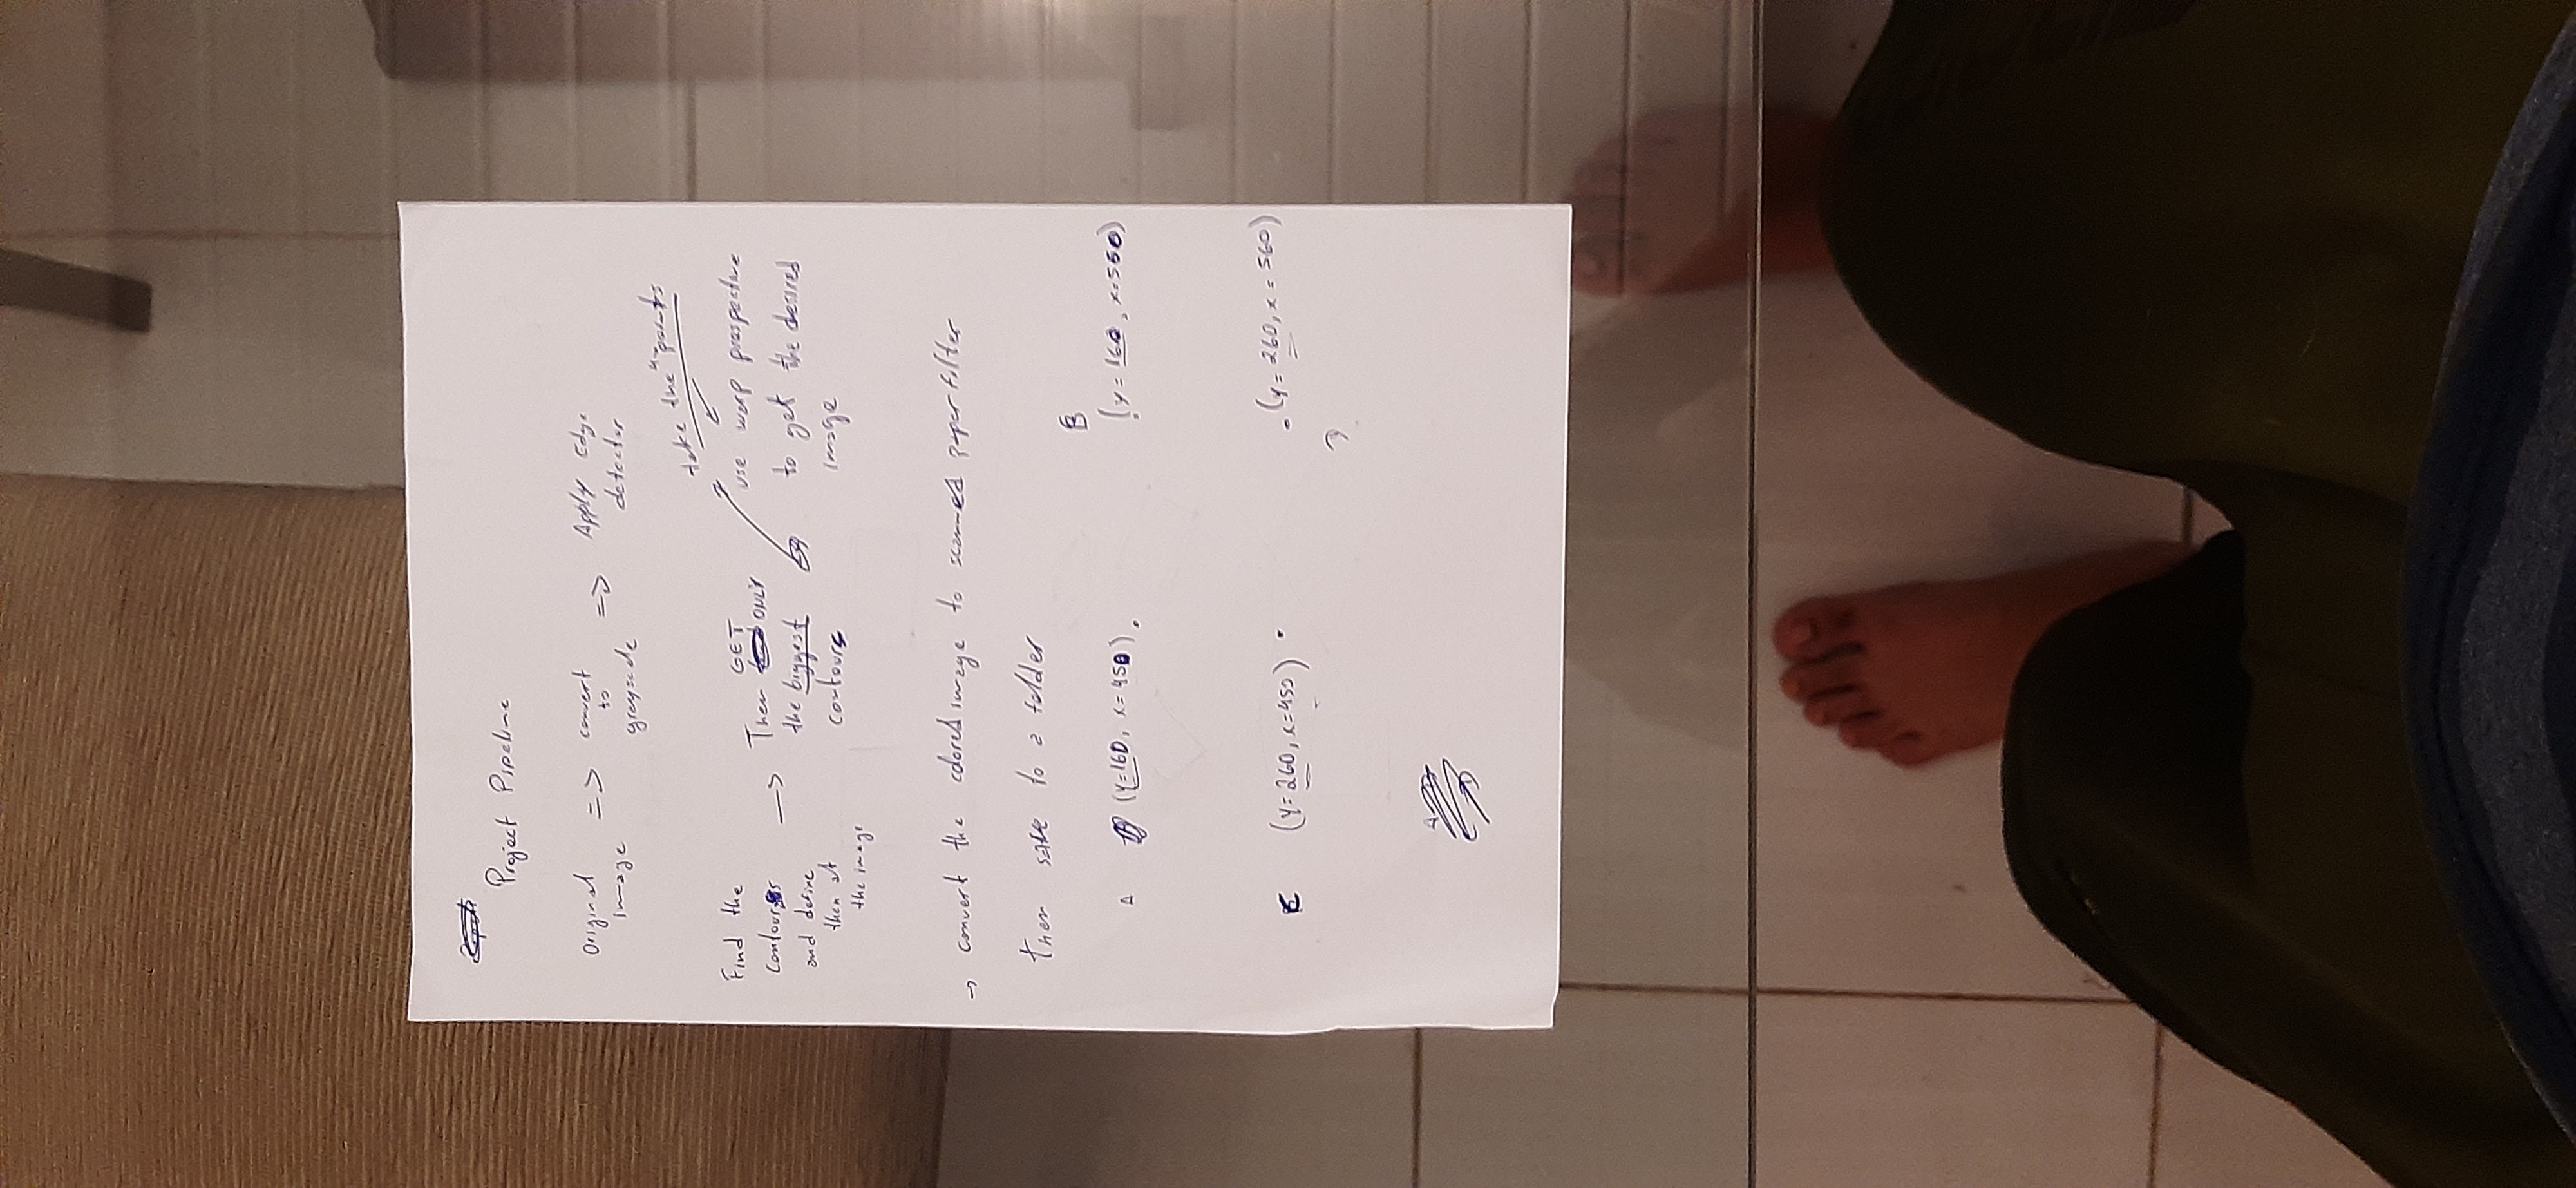 Project Pipeline
Original image => convert to greyscale => Apply Edge detector
Find the
contours
and define
then at
the image
->
GET
Then ONLY
the biggest
contours
take the 4 points
use warp prespective
to get the desired
image
-> convert the colored image to scanned paper filter
Then save to a folder
A (y=160, x=450).
B
(y=160, x=560)
C (y=260, x=450)
(y=260, x=560)